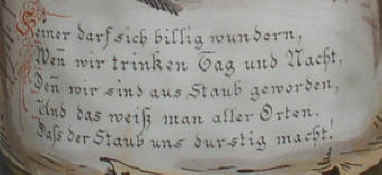 Keiner darf sich billig wundern,
Weñ wir trinken Tag und Nacht,
Deñ wir sind aus Staub geworden,
Und das weiß man aller Orten.
Daß der Staub uns durstig macht!